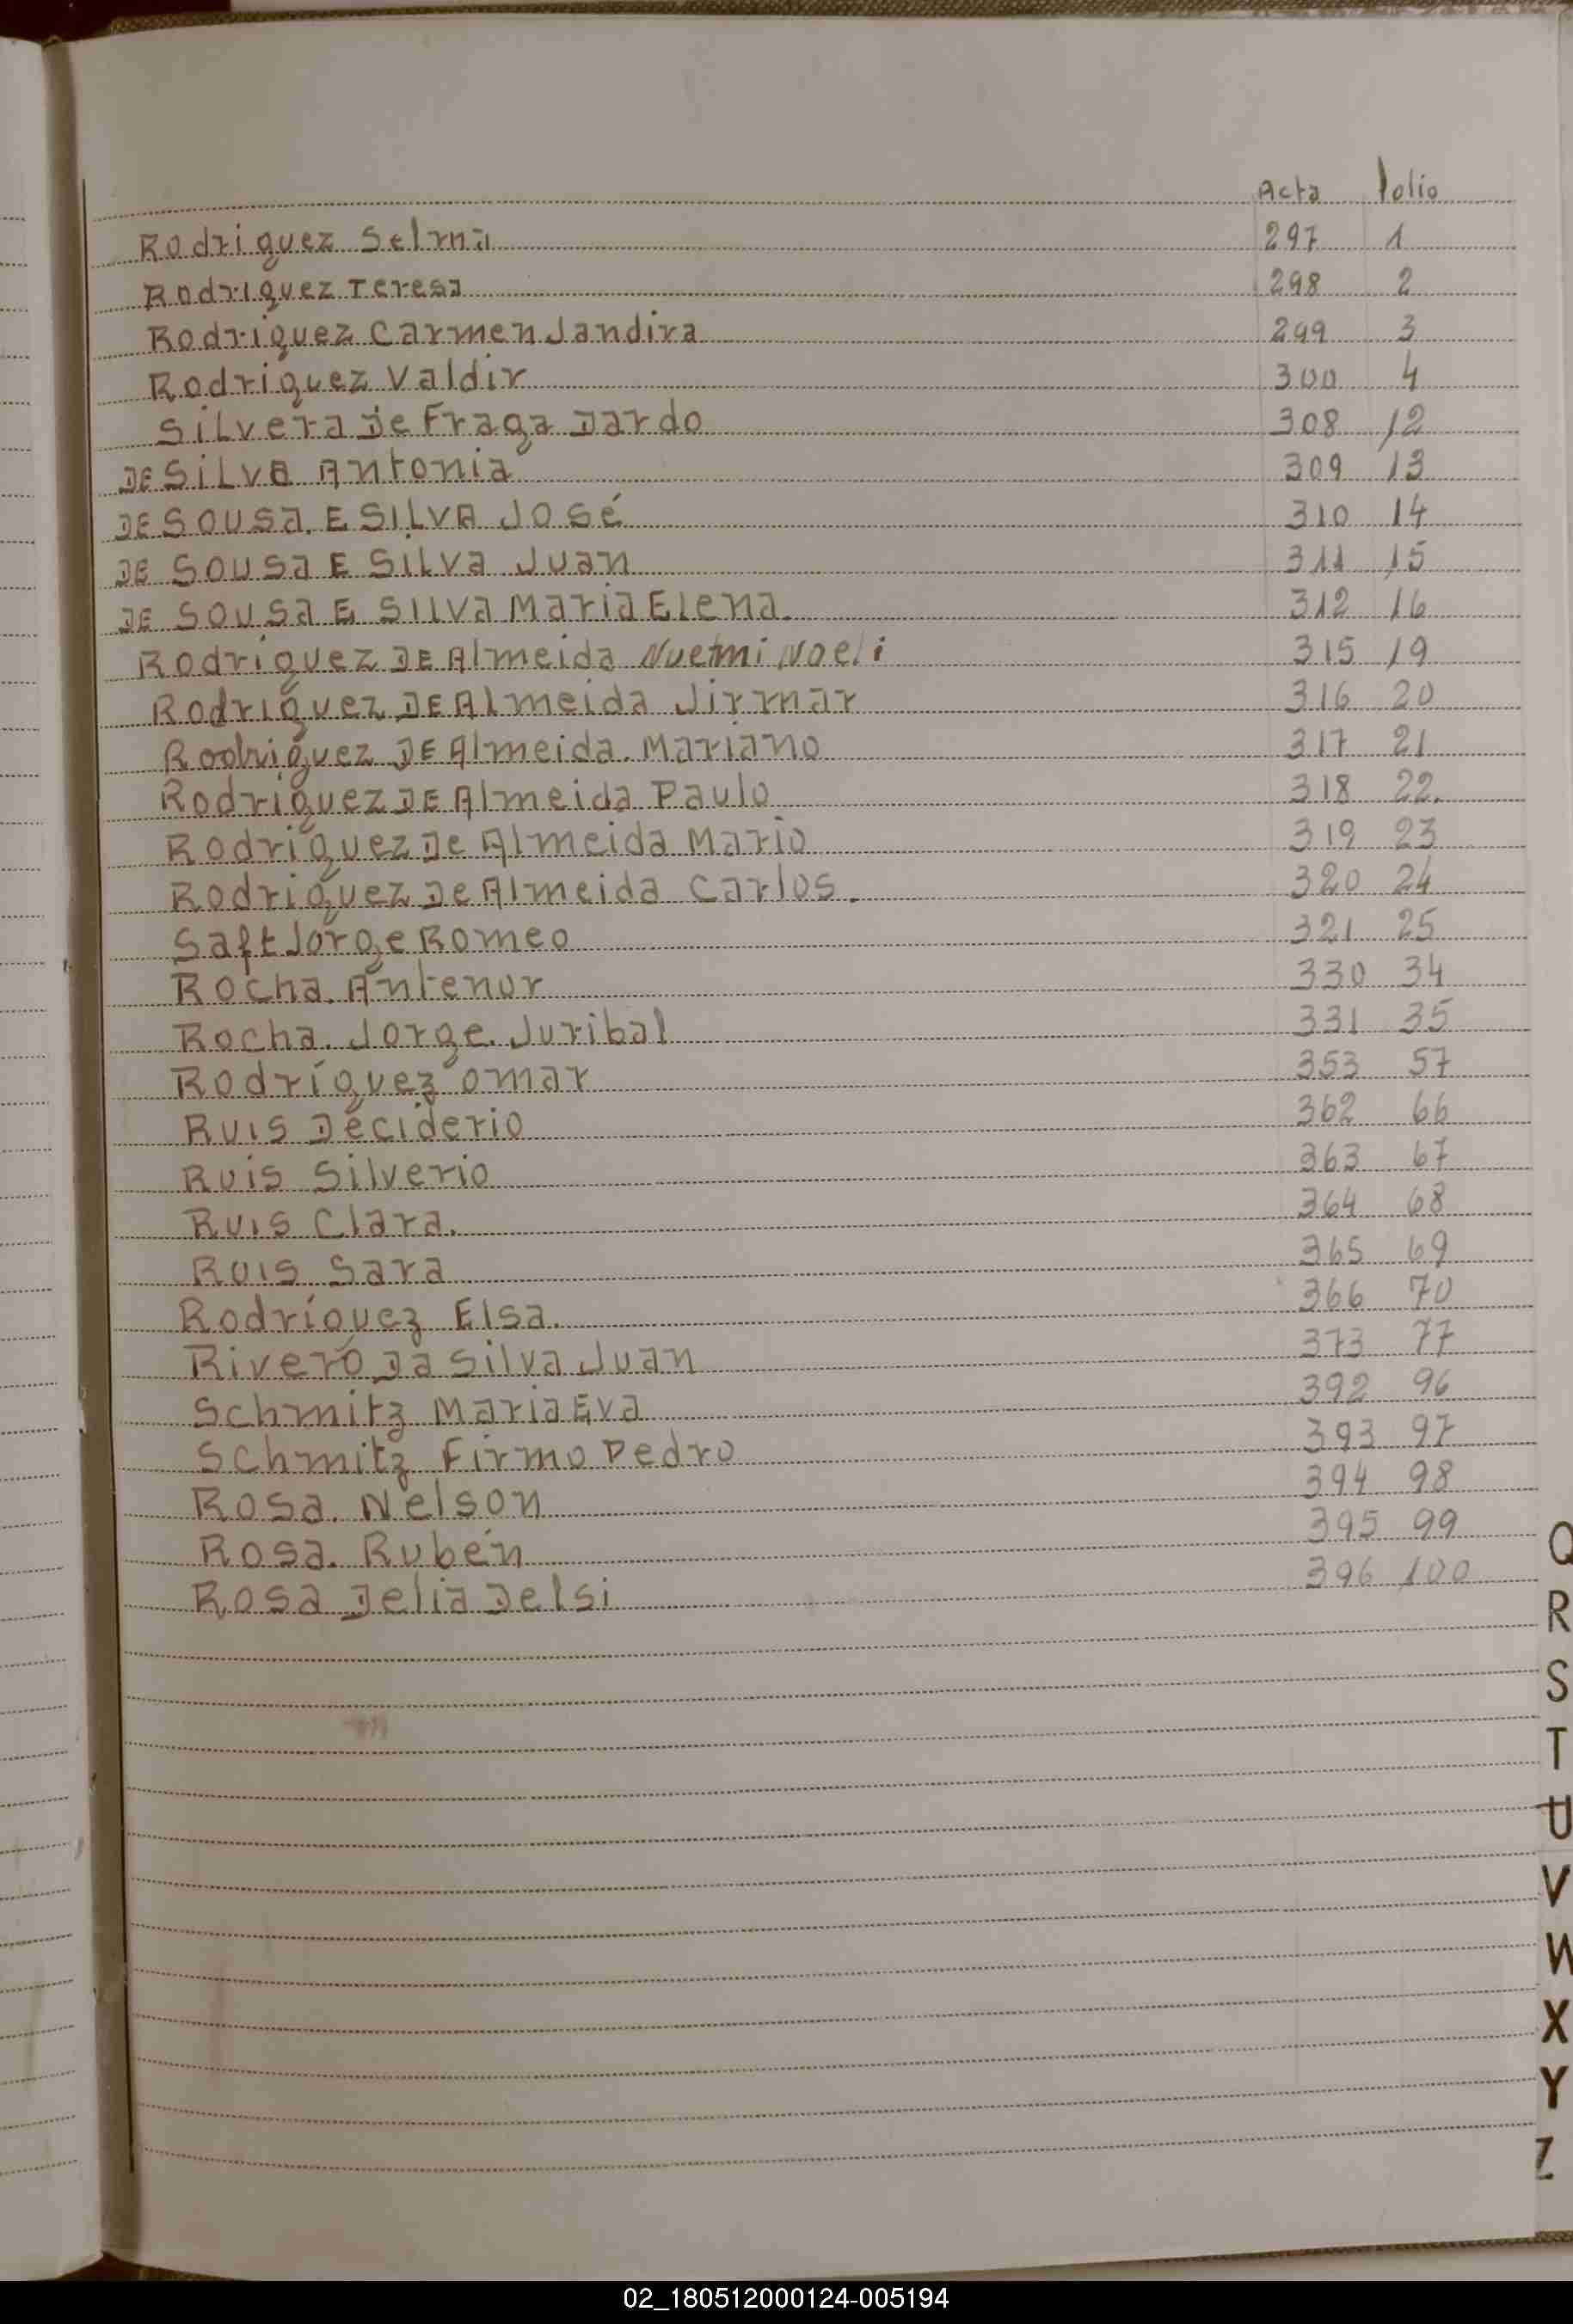 Acta folio
Rodriguez Selma 297 1
Rodriguez Teresa 298 2
Rodriguez Carmen Jandira 299 3
Rodriguez Valdir 300 4
Silvera De Fraga Dardo 308 12
DE Silva Antonia 309 13
DE Sousa. E SILVA José 310 14
DE Sousa E Silva Juan 311 15
DE Sousa E Silva Maria Elena. 312 16
Rodriguez DE Almeida Nuemi Noeli 315 19
Rodriguez DE Almeida Jirmar 316 20
Rodriguez DE Almeida. Mariano 317 21
Rodriguez DE Almeida Paulo 318 22.
Rodriguez De Almeida Mario 319 23
Rodriguez De Almeida Carlos. 320 24
Saft Jorge Romeo 321 25
Rocha. Antenor 330 34
Rocha. Jorge. Juribal 331 35
Rodríguez omar 353 57
Ruis Deciderio 362 66
Ruis Silverio 363 67
Ruis Clara. 364 68
Ruis Sara 365 69
Rodríguez Elsa. 366 70
Rivero Da Silva Juan 373 77
Schmitz Maria Eva 392 96
Schmitz Firmo Pedro 393 97
Rosa. Nelson 394 98
Rosa. Rubén 395 99
Rosa Delia Delsi 396 100
Q
R
S
T
U
V
W
X
Y
Z
02_180512000124-005194